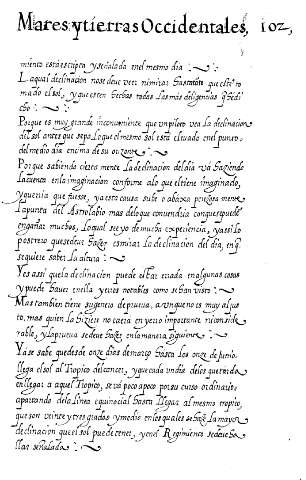 Mares, y tierras Occidentales, 102,
miento està escripta y señalada en el mesmo dia
La qual declinacion no se deve ver ni mirar hasta que esté to
mado el sol, y que esten hechas todas las mas diligencias q̃ he di
cho
Porque es muy grande inconveniente que un piloto vea la declinacion
del sol antes que sepa lo que el mesmo sol está elevado en el punto
del medio dia encima de su orizonte
Porque sabiendo ciertamente la declinacion del dia va haziendo
la cuenta en la imaginacion conforme a lo que el tiene imaginado,
y querria que fuese, y a esta causa sube o abaxa
la punta del Astrolabio mas de lo que comun dia
engañar muchos, lo qual se yo de mucha experiencia, y assi lo
postrero que se deve hazer es mirar la declinacion del dia, en q̃
se quiere saber la altura
Y es assi que la declinacion puede estar errada en algunas cosas
y puede haver en ella yerros notables como se han visto
Mas tambien tiene su genero de prueva, aunque no es muy al jus
to, mas quien la hiziere no caera en yerro importante ni conside
rable, y la prueva se deve hazer en la manera siguiente
Ya se sabe que desde onze dias de março hasta los onze de junio
llega el sol al Tropico de cancer, y que cada un dia de los que tarda
en llegar a aquel Tropico, se va poco a poco por su curso ordinario
apartando de la linea equinocial hasta llegar al mesmo tropico,
que son veinte y tres grados y medio en los quales se haze la mayor
declinacion que el sol puede tener, y en el Regimiento se deve ha
llar señalado